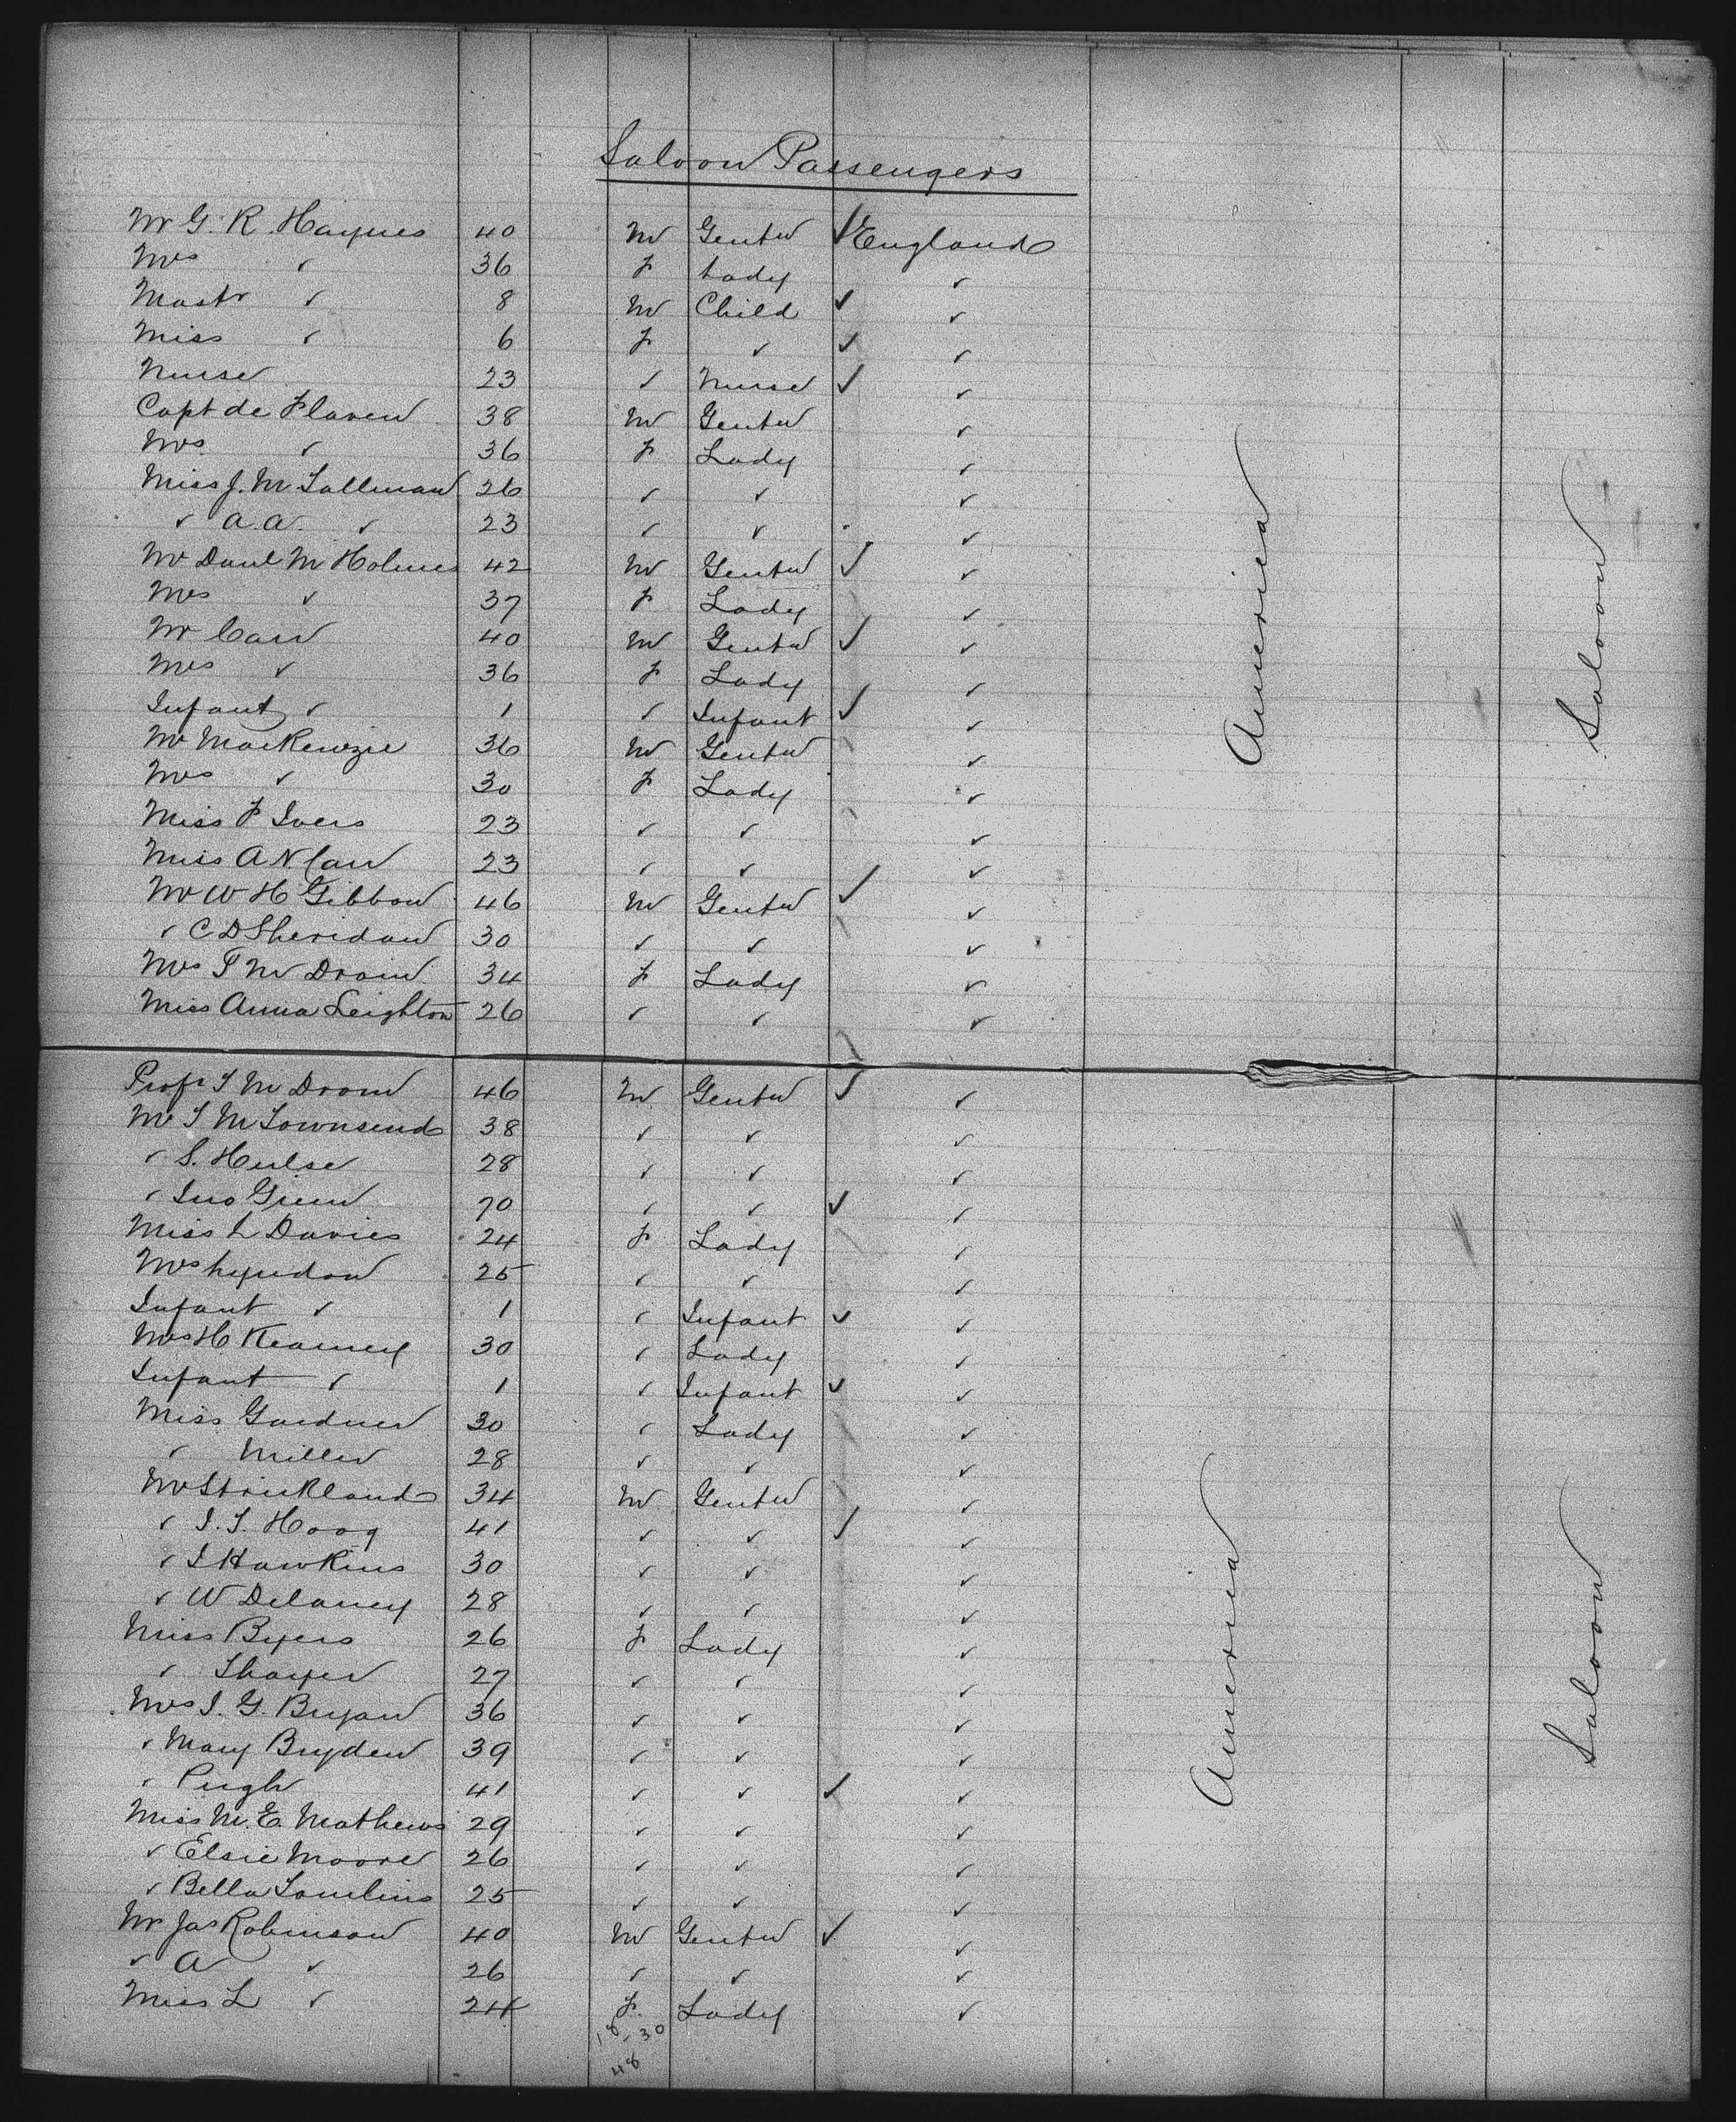 Saloon Passengers
Mr G. R. Haynes 40 M Gentn England
Mrs " 36 F Lady "
Mastr " 8 M Child "
Miss " 6 F " "
Nurse 23 " Nurse "
Capt de Flaven 38 M Gentn "
Mrs " 36 F Lady "
Miss J. M Tallman 26 " " "
" A. A. " 23 " " "
Mr Danl M Holmes 42 M Gentn "
Mrs " 37 F Lady "
Mr Carr 40 M Gentn "
Mrs " 36 F Lady "
Infant " 1 " Infant "
Mr MacKenzie 36 M Gentn "
Mrs " 30 F Lady "
Miss F Ivers 23 " " "
Miss A N Carr 23 " " "
Mr W H Gibbon 46 M Gentn "
" C D Sheridan 30 " " "
Mrs T M Drown 34 F Lady "
Miss Anna Leighton 26 " " "
America
Saloon
Profr T M Drown 46 M Gentn "
Mr T M Townsend 38 " " "
" S. Hulse 28 " " "
" Jno Grunn 70 " " "
Miss L Davies 24 F Lady "
Mrs Lyndon 25 " " "
Infant " 1 " Infant "
Mrs H. Kearney 30 " Lady "
Infant " 1 " Infant "
Miss Gardner 30 " Lady "
" Miller 28 " " "
Mr Strickland 34 M Gentn "
" I. T. Hoag 41 " " "
" I Hawkins 30 " " "
" W Delaney 28 " " "
Miss Byers 26 F Lady "
" Thayer 27 " " "
Mrs I. G. Bryan 36 " " "
" Mary Bryden 39 " " "
" Pugh 41 " " "
Miss M. E. Mathews 29 " " "
" Elsie Moore 26 " " "
" Bella Tomlins 25 " " "
Mr Jas Robinson 40 M Gentn "
" A " 26 " " "
Miss L " 24 F. Lady "
18 30
48
America
Saloon